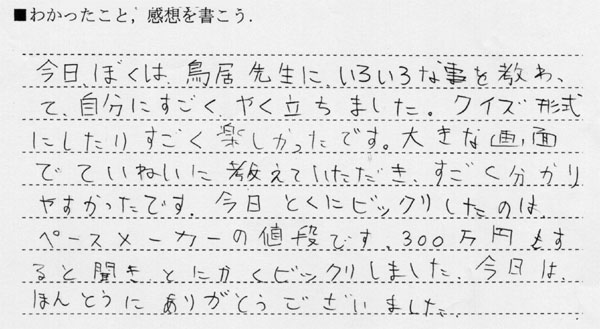 ■わかったこと，感想を書こう．
今日、ぼくは、鳥居先生に、いろいろな事を教わっ
て、自分にすごく、やく立ちました。クイズ形式
にしたりすごく楽しかったです。大きな画面
でていねいに教えていただき、すごく分かり
やすかったです。今日とくにビックリしたのは、
ペースメーカーの値段です、300万円もす
ると聞き、とにかくビックリしました。今日は、
ほんとうにありがとうございました。